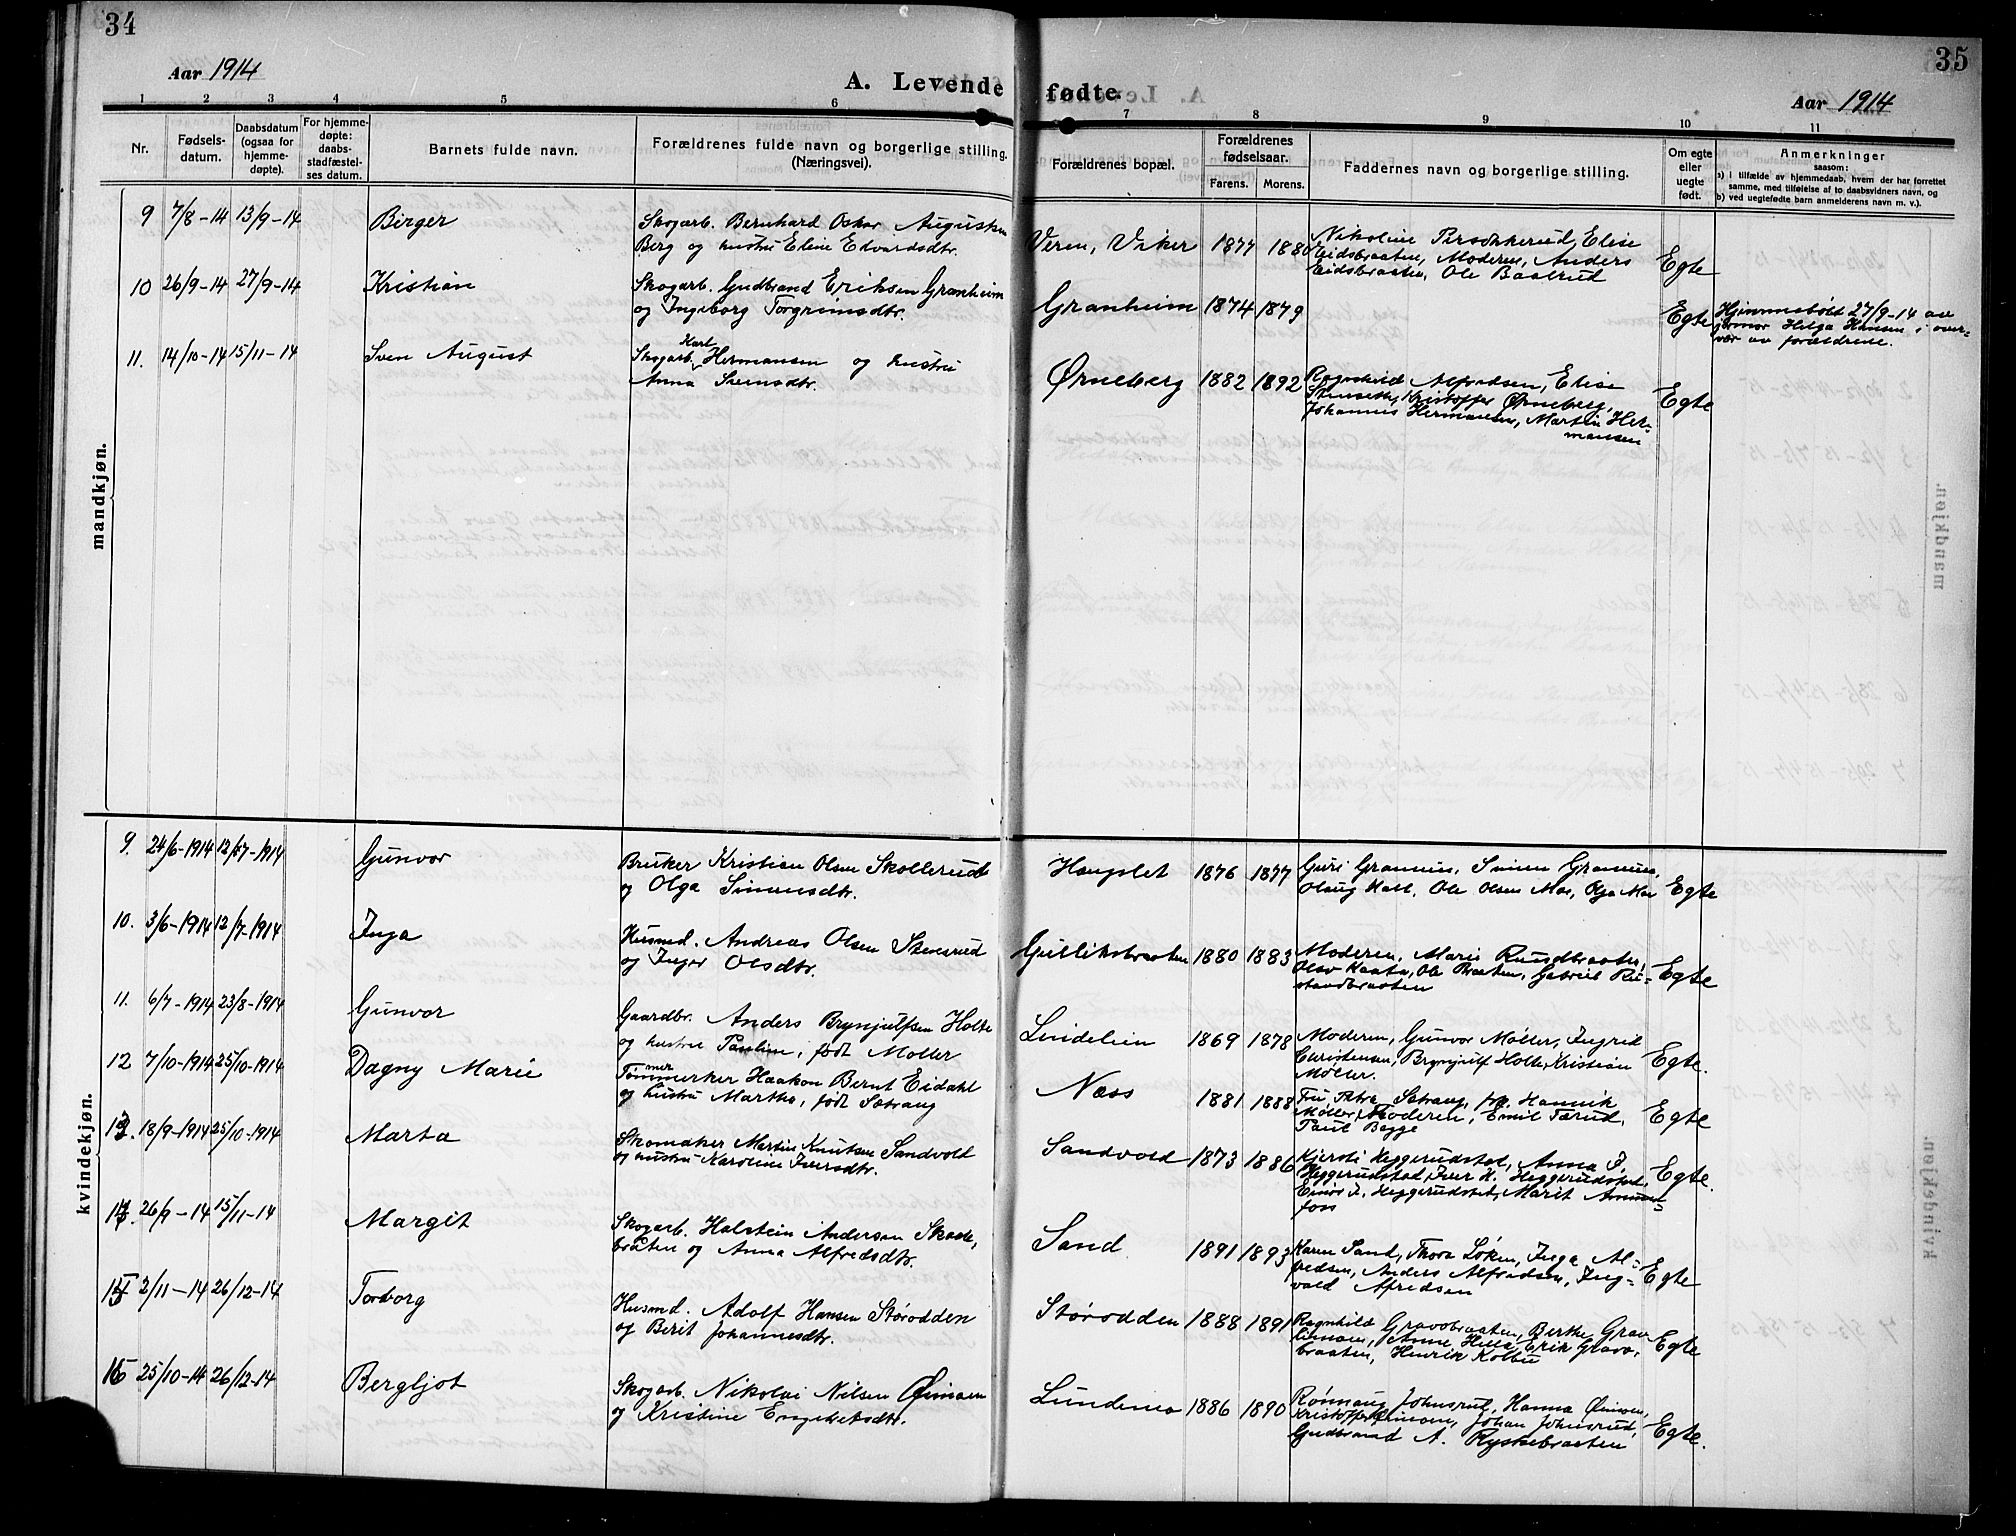 34
Aar 1914
A. Levende
1 2 3 4 5 6
Nr.
Fødsels-
datum.
Daabsdatum
(ogsaa for
hjemme-
døpte).
For hjemme-
døpte:
daabs-
stadfæstel-
ses datum.
Barnets fulde navn.
Forældrenes fulde navn og borgerlige stilling.
(Næringsvei).
mandkjøn.
9 7/8-14 13/9-14 Birger
Skogarb. Bernhard Oskar Augustsen
Berg og hustru Eline Edvardsdtr.
10 26/9-14 27/9-14 Kristian
Skogarb. Gudbrand Eriksen Granheim
og Ingeborg Torgrimsdtr.
11. 14/10-14 15/11-14 Sven August
Karl
Skogarb. Hermansen og hustru
Anna Svensdtr.
kvindekjøn.
9. 24/6-1914 12/7-1914 Gunvor
Bruker Kristian Olsen Skollerud
og Olga Simensdtr.
10. 3/6-1914 12/7-1914 Inga
Husmd. Andreas Olsen Stensrud
og Inger Olsdtr.
11. 6/7-1914 23/8-1914 Gunvor
Gaardbr. Anders Brynjulfsen Holte
og hustru Pauline, født Møller
12 7/10-1914 25/10-1914 Dagny Marie
mer
Tømmerker Haakon Bernt Eidahl
og hustru Martha, født Sætrang
13. 18/9-1914 25/10-1914 Marta
Skomaker Martin Knutsen Sandvold
og hustru Karoline Iversdtr.
14. 26/9-14 15/11-14 Margit
Skogarb. Halstein Andersen Skade,
bråten og Anna Alfredsdtr.
15 2/11-14 26/12-14 Torborg
Husmd. Adolf Hansen Størodden
og Berit Johannesdtr.
16 25/10-14 26/12-14 Bergljot
Skogarb. Nikolai Nilsen Øimoen
og Kristine Engebretsdtr.
35
fødte.
Aar 1914
7 8 9 10 11
Forældrenes bopæl.
Forældrenes
fødselsaar.
Farens. Morens.
Faddernes navn og borgerlige stilling.
Om egte
eller
uegte
født.
Anmerkninger
saasom:
a) i tilfælde av hjemmedaab, hvem der har forrettet
samme, med tilføielse af to daabsvidners navn, og
b) ved uegtefødte barn anmelderens navn m. v.).
Veren, Viker 1877 1880
Nikoline Elise
Eidsbraaten, Moderen, Anders
Eidsbraaten, Ole Baalrud
Egte
Granheim 1874 1879 Egte
Hjemmedøbt 27/9-14 av
jormor Helga Hansen i over-
vær av forældrene.
Ørneberg 1882 1892
Ragnhild Alfredsen, Elise
Stenseth, Kristoffer Ørneberg,
Johannes Hermansen, Martin Her-
mansen
Egte
Haugslet 1876 1877
Guri Grannes, Simen Grannes,
Olaug Hall, Ole Olsen Moe, Olga Moe
Egte
Gulliksbraaten 1880 1883
Moderen, Marie Rusdbraaten,
Olav Kaata, Ole Braaten, Gabriel Ru-
standbraaten
Egte
Lindelien 1869 1878
Moderen, Gunvor Møller, Ingrid
Christensen, Brynjulf Holte, Kristian
Møller.
Egte.
Næss 1881 1888
Fru Thora Sætrang, Hannik
Møller, Moderen, Emil Færud,
Paul Bagge
Egte
Sandvold 1873 1886
Kjersti Heggerudstad, Anna I.
Heggerudstad, Iver H. Heggerudstad,
Einar I. Heggerudstad, Marit Ammes-
foss
Egte.
Sand 1891 1893
Karen Sand, Thora Løken, Inga Al-
fredsen, Anders Alfredsen, Ing-
vald Alfredsen
Egte
Størodden 1888 1891
Ragnhild Gravobraaten, Berthe Grav
limoen, Anne Hilla, Erik Gravo,
braaten, Henrik Kolbu
Egte
Lundemo 1886 1890
Rønnaug Johnsrud, Hanna Øimoen,
Kristoffer Øimoen, Johan Johnsrud,
Gudbrand A. Ryskebraaten
Egte.